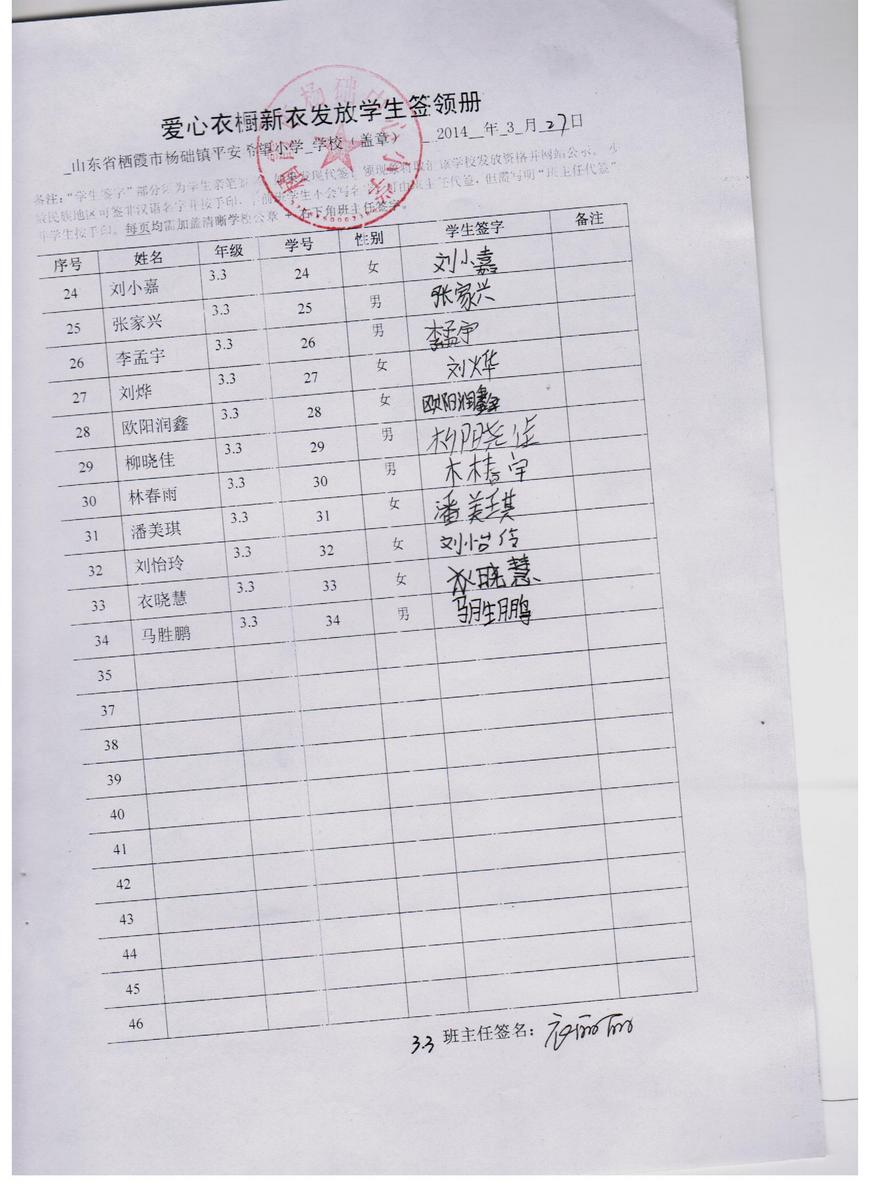 爱心衣橱新衣发放学生签领册
_山东省栖霞市杨础镇平安希望小学_学校（盖章） __2014__年_3_月_27日
备注：“学生签字”部分须为学生亲笔 发现代签 该学校发放资格并网站公示。少
数民族地区可签非汉语名字并按手印。 学生不会写名 可由班主任代签，但需写明“班主任代签”
并学生按手印。每页均需加盖清晰学校公章 + 右下角班主任签字。
序号 姓名 年级 学号 性别 学生签字 备注
24 刘小嘉 3.3 24 女 刘小嘉
25 张家兴 3.3 25 男 张家兴
26 李孟宇 3.3 26 男 李孟宇
27 刘烨 3.3 27 女 刘烨
28 欧阳润鑫 3.3 28 女 欧阳润鑫
29 柳晓佳 3.3 29 男 柳阳尧佳
30 林春雨 3.3 30 男
31 潘美琪 3.3 31 女 潘美琪
32 刘怡玲 3.3 32 女 刘怡伶
33 衣晓慧 3.3 33 女 衣晓慧
34 马胜鹏 3.3 34 男 马胜鹏
35
37
38
39
40
41
42
43
44
45
46
3.3 班主任签名：衣丽丽